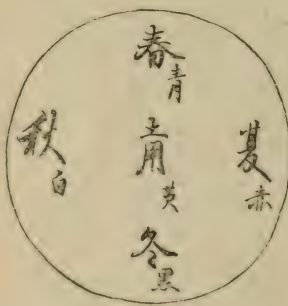 春
青
夏
赤
土用
黄
秋
白
冬
黒